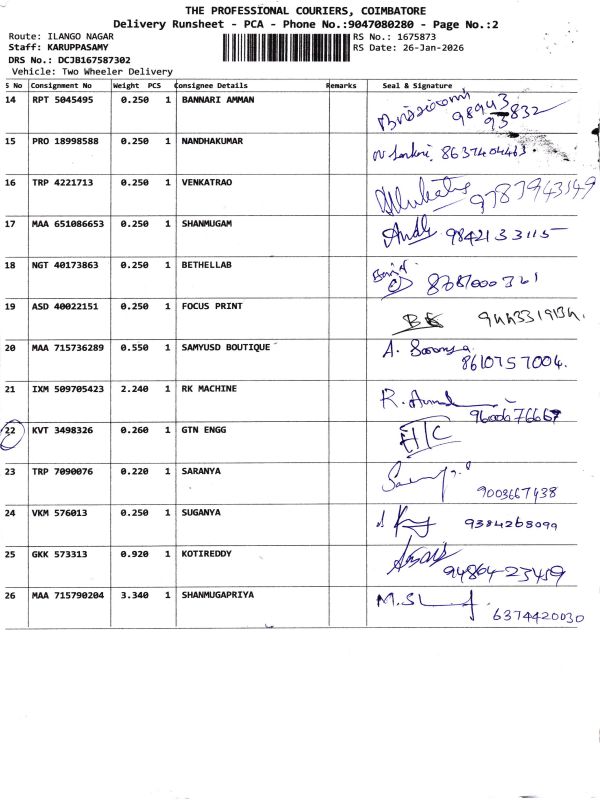 THE PROFESSIONAL COURIERS, COIMBATORE
Delivery Runsheet - PCA - Phone No.:9047080280 - Page No.:2
Route: ILANGO NAGAR
RS No.: 1675873
Staff: KARUPPASAMY
RS Date: 26-Jan-2026
DRS No.: DCJB167587302
Vehicle: Two Wheeler Delivery
S No Consignment No Weight PCS Consignee Details Remarks Seal & Signature
14 RPT 5045495 0.250 1 BANNARI AMMAN 98943 93832
15 PRO 18998588 0.250 1 NANDHAKUMAR 8637404463
16 TRP 4221713 0.250 1 VENKATRAO 9787943549
17 MAA 651086653 0.250 1 SHANMUGAM 9842133115
18 NGT 40173863 0.250 1 BETHELLAB
19 ASD 40022151 0.250 1 FOCUS PRINT
20 MAA 715736289 0.550 1 SAMYUSD BOUTIQUE A. 8610757004.
21 IXM 509705423 2.240 1 RK MACHINE R. 9600676667
22 KVT 3498326 0.260 1 GTN ENGG
23 TRP 7090076 0.220 1 SARANYA 9003667438
24 VKM 576013 0.250 1 SUGANYA 9384268099
25 GKK 573313 0.920 1 KOTIREDDY 94864-23459
26 MAA 715790204 3.340 1 SHANMUGAPRIYA 6374420030